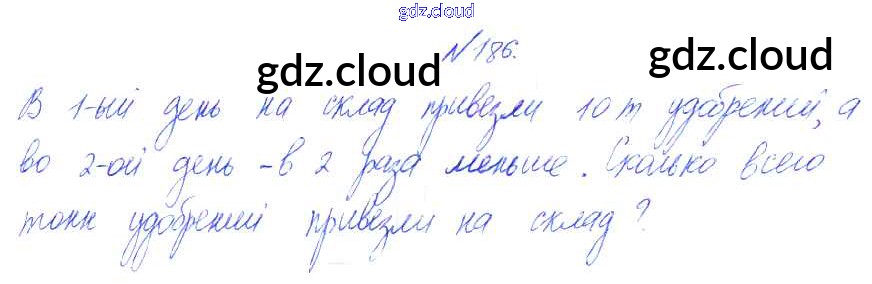 gdz.cloud
№186.
gdz.cloud gdz.cloud
В 1-ый день на склад привезли 10 т удобрений, а
во 2-ой день - в 2 раза меньше. Сколько всего
тонн удобрений привезли на склад?